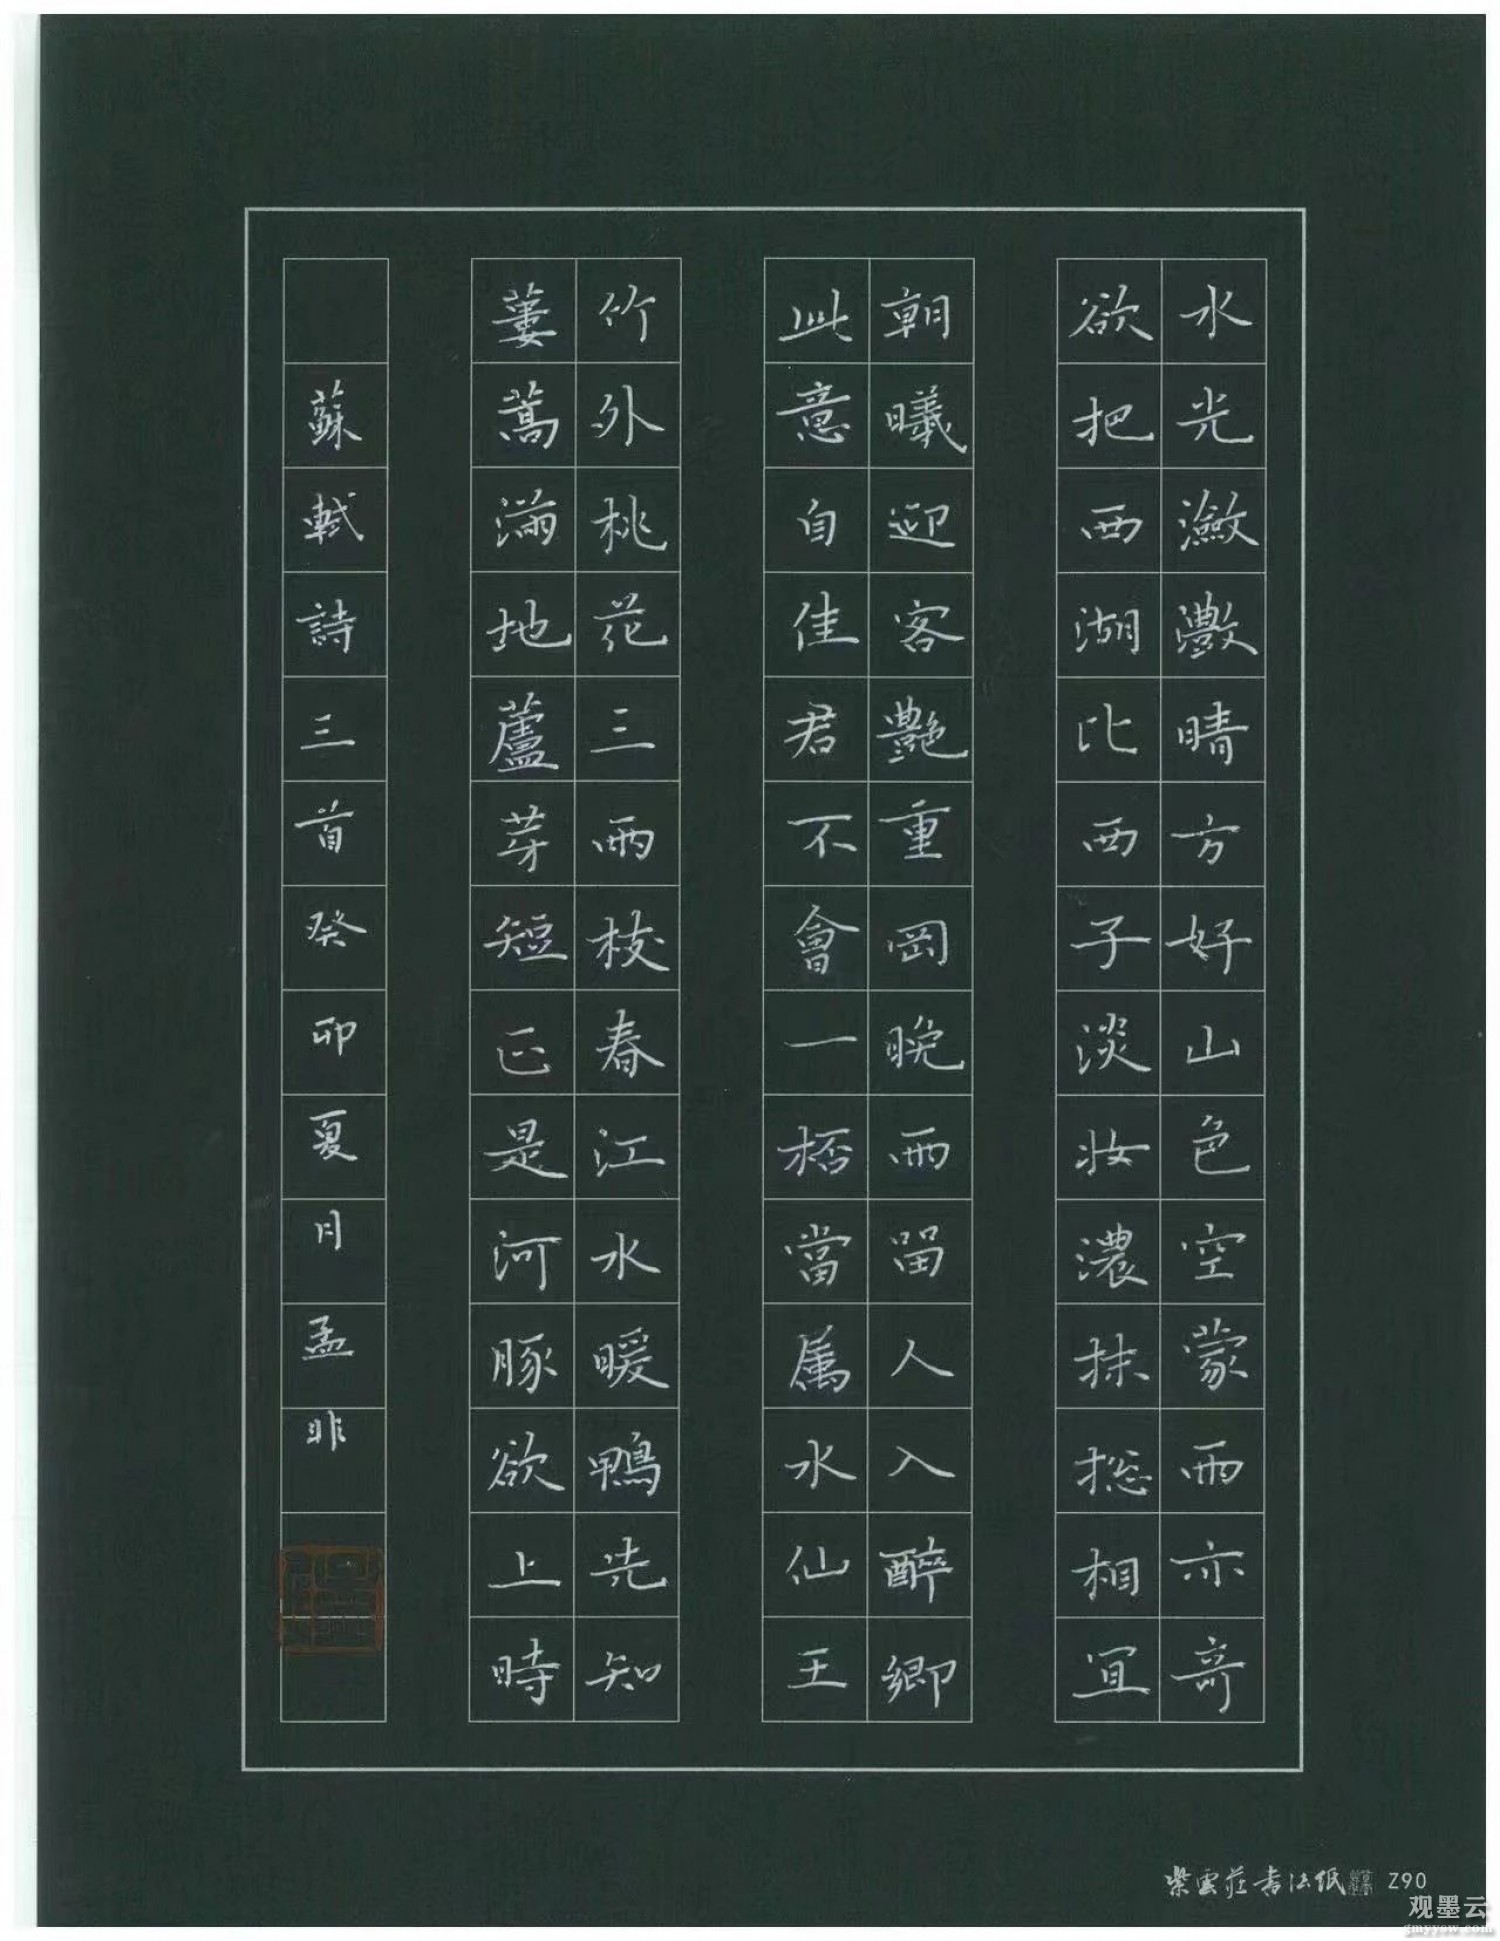 水光瀲灧晴方好山色空蒙雨亦奇
欲把西湖比西子淡妝濃抹總相宜
朝曦迎客艷重岡晚雨留人入醉鄉
此意自佳君不會一桮當屬水仙王
竹外桃花三兩枝春江水暖鴨先知
蔞蒿滿地蘆芽短正是河豚欲上時
蘇軾詩三首癸卯夏月孟非
紫雲莊書法紙 Z90
观墨云
gmyyew.com